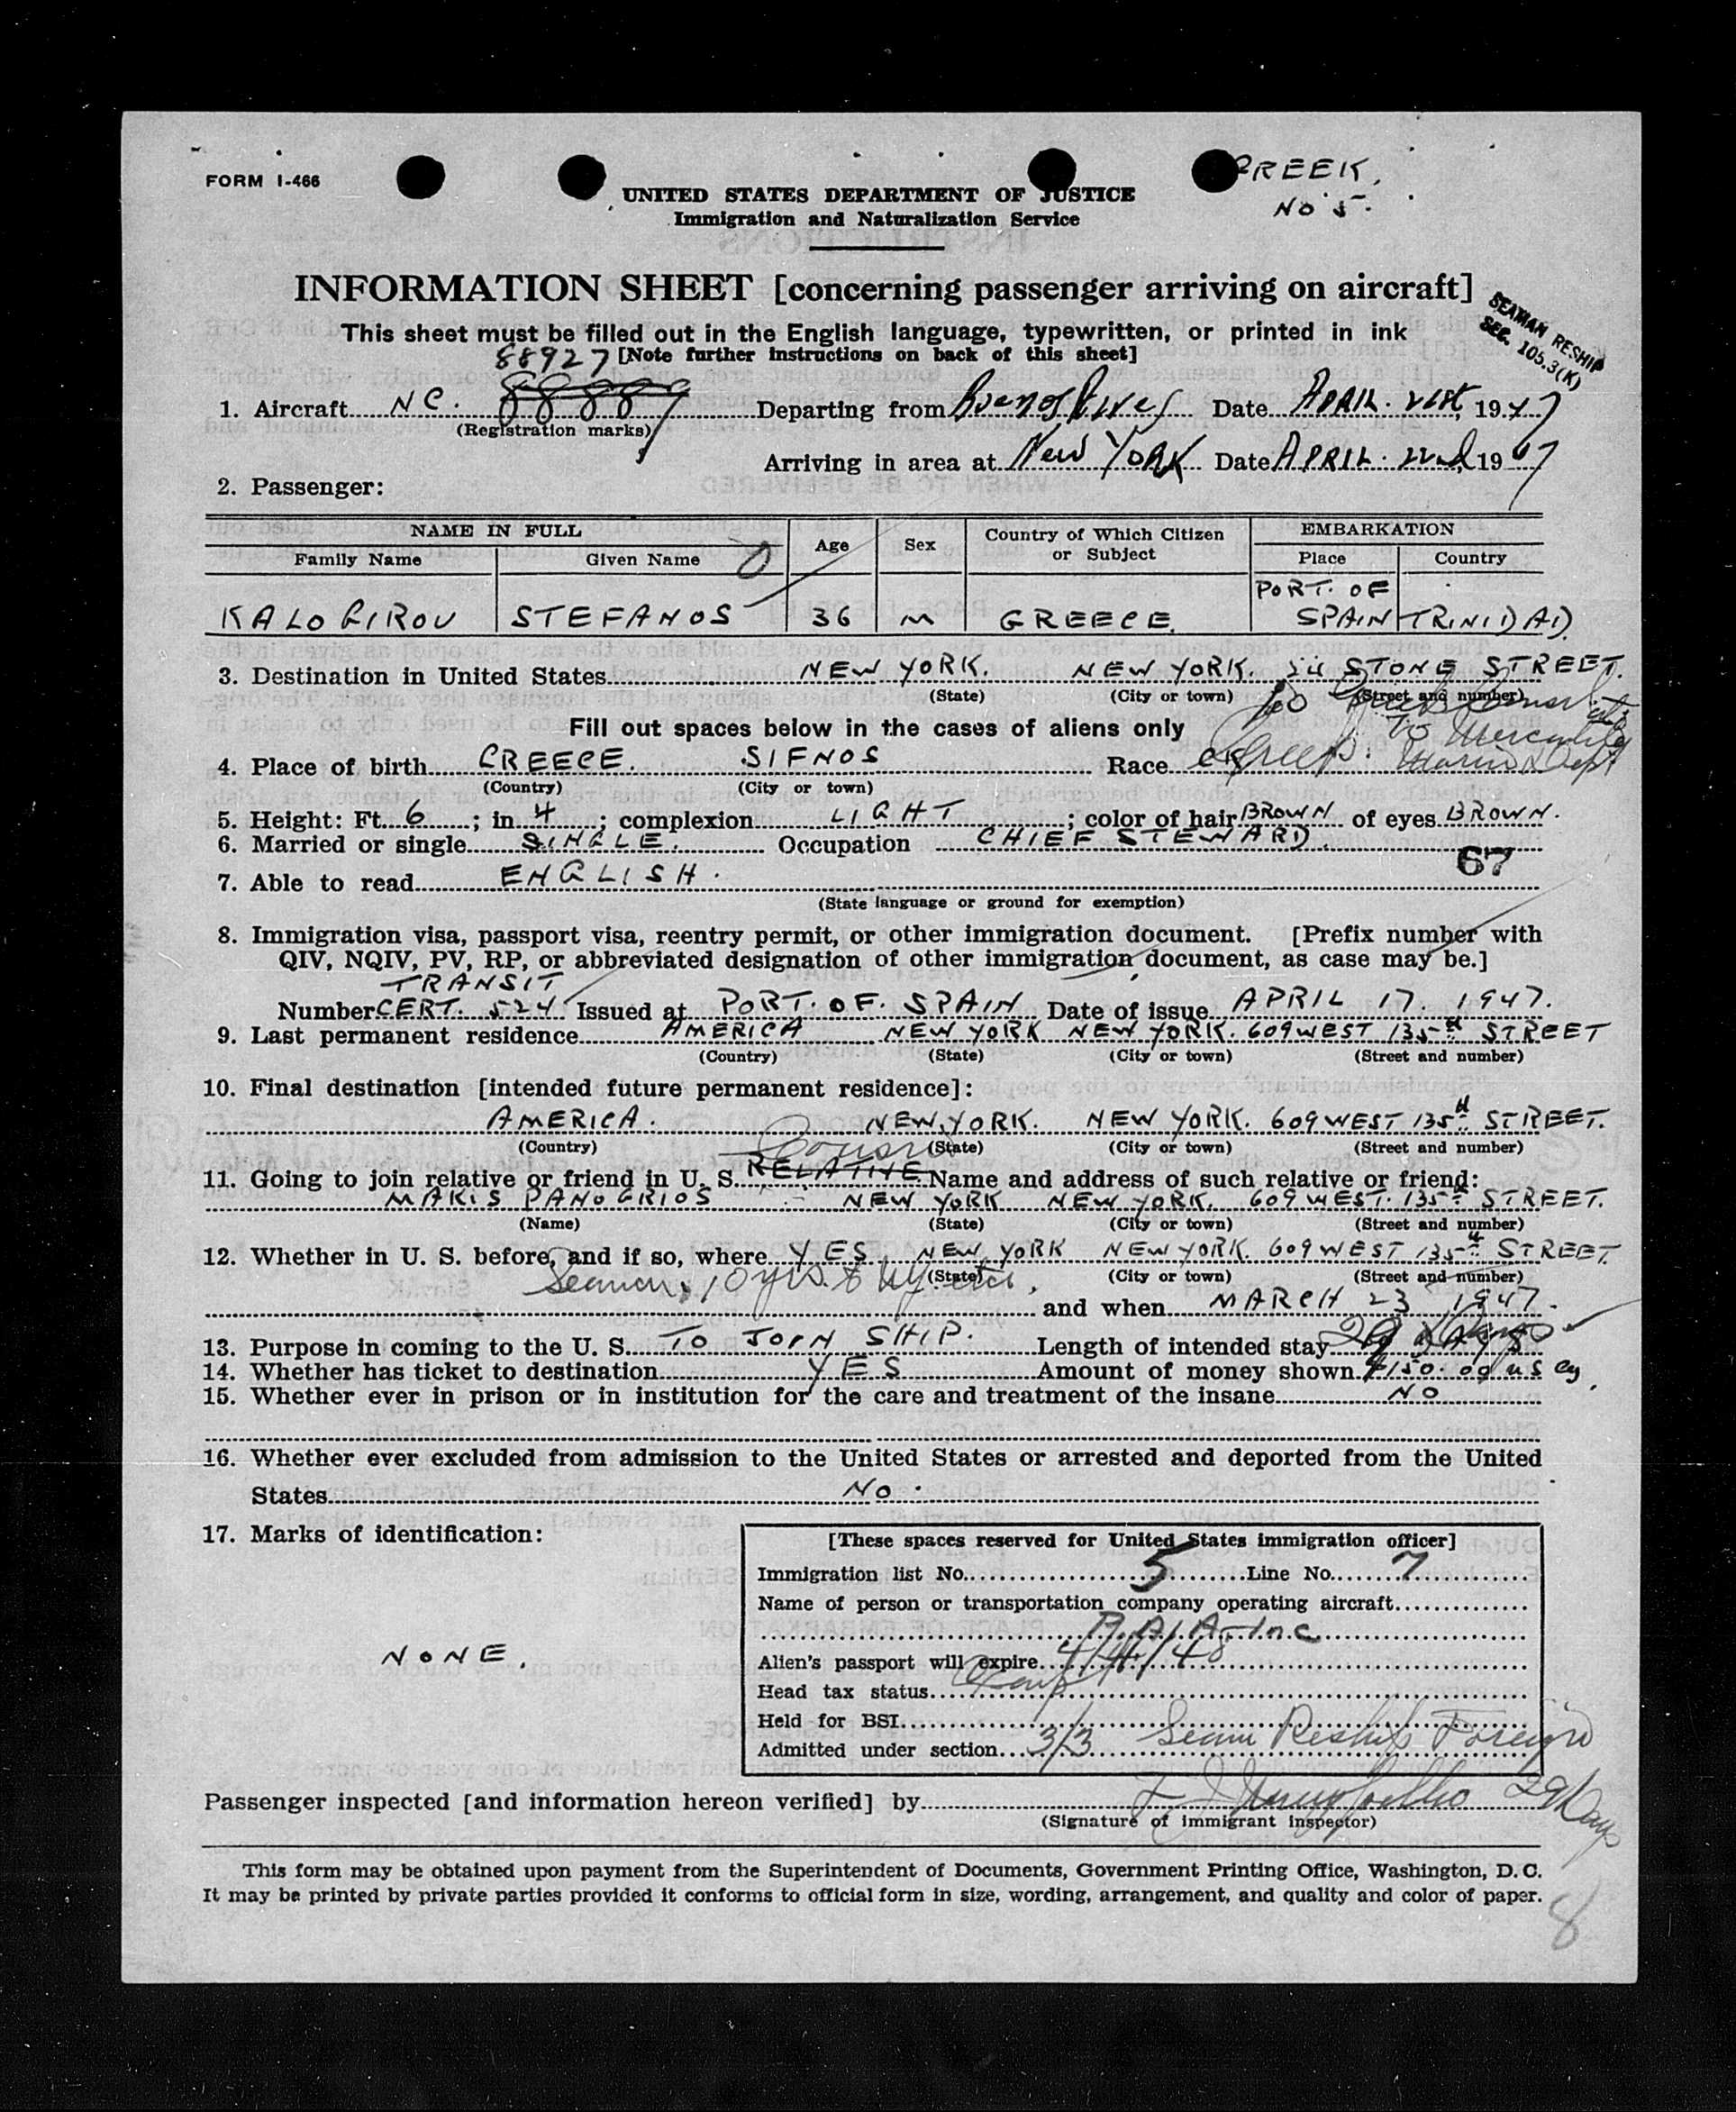 FORM I-466
GREEK.
NO 5.
UNITED STATES DEPARTMENT OF JUSTICE
Immigration and Naturalization Service
INFORMATION SHEET [concerning passenger arriving on aircraft]
SEAMAN RESHIP
SEC. 105.3(K)
This sheet must be filled out in the English language, typewritten, or printed in ink
88927 [Note further instructions on back of this sheet]
1. Aircraft NC. 88889 Departing from Buenos Aires Date APRIL. 21st, 1947
(Registration marks)
Arriving in area at New YORK Date APRIL. 22nd 1947
2. Passenger:
NAME IN FULL Age Sex Country of Which Citizen or Subject EMBARKATION
Family Name Given Name Place Country
KALOGIROU STEFANOS 36 M GREECE. PORT. OF SPAIN TRINIDAD.
3. Destination in United States NEW YORK. NEW YORK. 24 STONE STREET.
(State) (City or town) (Street and number)
Fill out spaces below in the cases of aliens only
4. Place of birth GREECE. SIFNOS Race Greek.
(Country) (City or town)
5. Height: Ft. 6 ; in. 4 ; complexion LIGHT ; color of hair BROWN of eyes BROWN.
6. Married or single SINGLE. Occupation CHIEF STEWARD.
67
7. Able to read ENGLISH.
(State language or ground for exemption)
8. Immigration visa, passport visa, reentry permit, or other immigration document. [Prefix number with
QIV, NQIV, PV, RP, or abbreviated designation of other immigration document, as case may be.]
TRANSIT
Number CERT. 524 Issued at PORT. OF. SPAIN Date of issue APRIL 17. 1947.
9. Last permanent residence AMERICA NEW YORK NEW YORK. 609 WEST 135th STREET
(Country) (State) (City or town) (Street and number)
10. Final destination [intended future permanent residence]:
AMERICA. NEW YORK. NEW YORK. 609 WEST 135th STREET.
(Country) (State) (City or town) (Street and number)
Cousin
11. Going to join relative or friend in U. S. RELATIVE Name and address of such relative or friend:
MAKIS PANOGRIOS NEW YORK NEW YORK. 609 WEST. 135th STREET.
(Name) (State) (City or town) (Street and number)
12. Whether in U. S. before, and if so, where YES NEW YORK NEW YORK. 609 WEST 135th STREET.
(State) (City or town) (Street and number)
Seaman, 10 yrs. and when MARCH 23 1947.
13. Purpose in coming to the U. S. TO JOIN SHIP. Length of intended stay 29 DAYS
14. Whether has ticket to destination YES Amount of money shown $150.00 US Cy.
15. Whether ever in prison or in institution for the care and treatment of the insane NO
16. Whether ever excluded from admission to the United States or arrested and deported from the United
States NO.
17. Marks of identification:
NONE.
[These spaces reserved for United States immigration officer]
Immigration list No. 5 Line No. 7
Name of person or transportation company operating aircraft
P.A.A. Inc
Alien's passport will expire 4/14/48
Head tax status
Held for BSI
Admitted under section 3/3 Seaman Reship Foreign
29 Days
Passenger inspected [and information hereon verified] by
(Signature of immigrant inspector)
This form may be obtained upon payment from the Superintendent of Documents, Government Printing Office, Washington, D. C.
It may be printed by private parties provided it conforms to official form in size, wording, arrangement, and quality and color of paper.
8